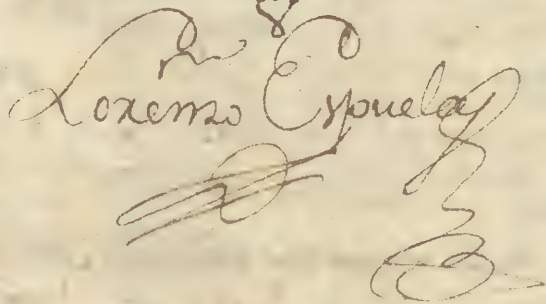 Lorenzo Espuelas